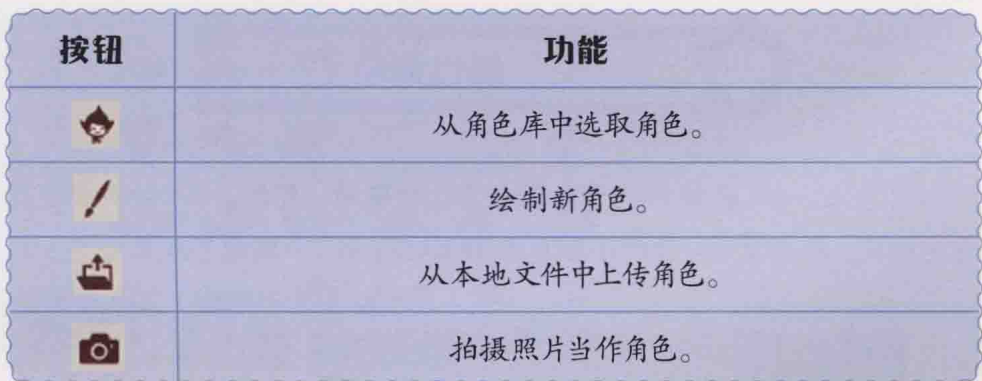 按钮 功能
从角色库中选取角色。
绘制新角色。
从本地文件中上传角色。
拍摄照片当作角色。